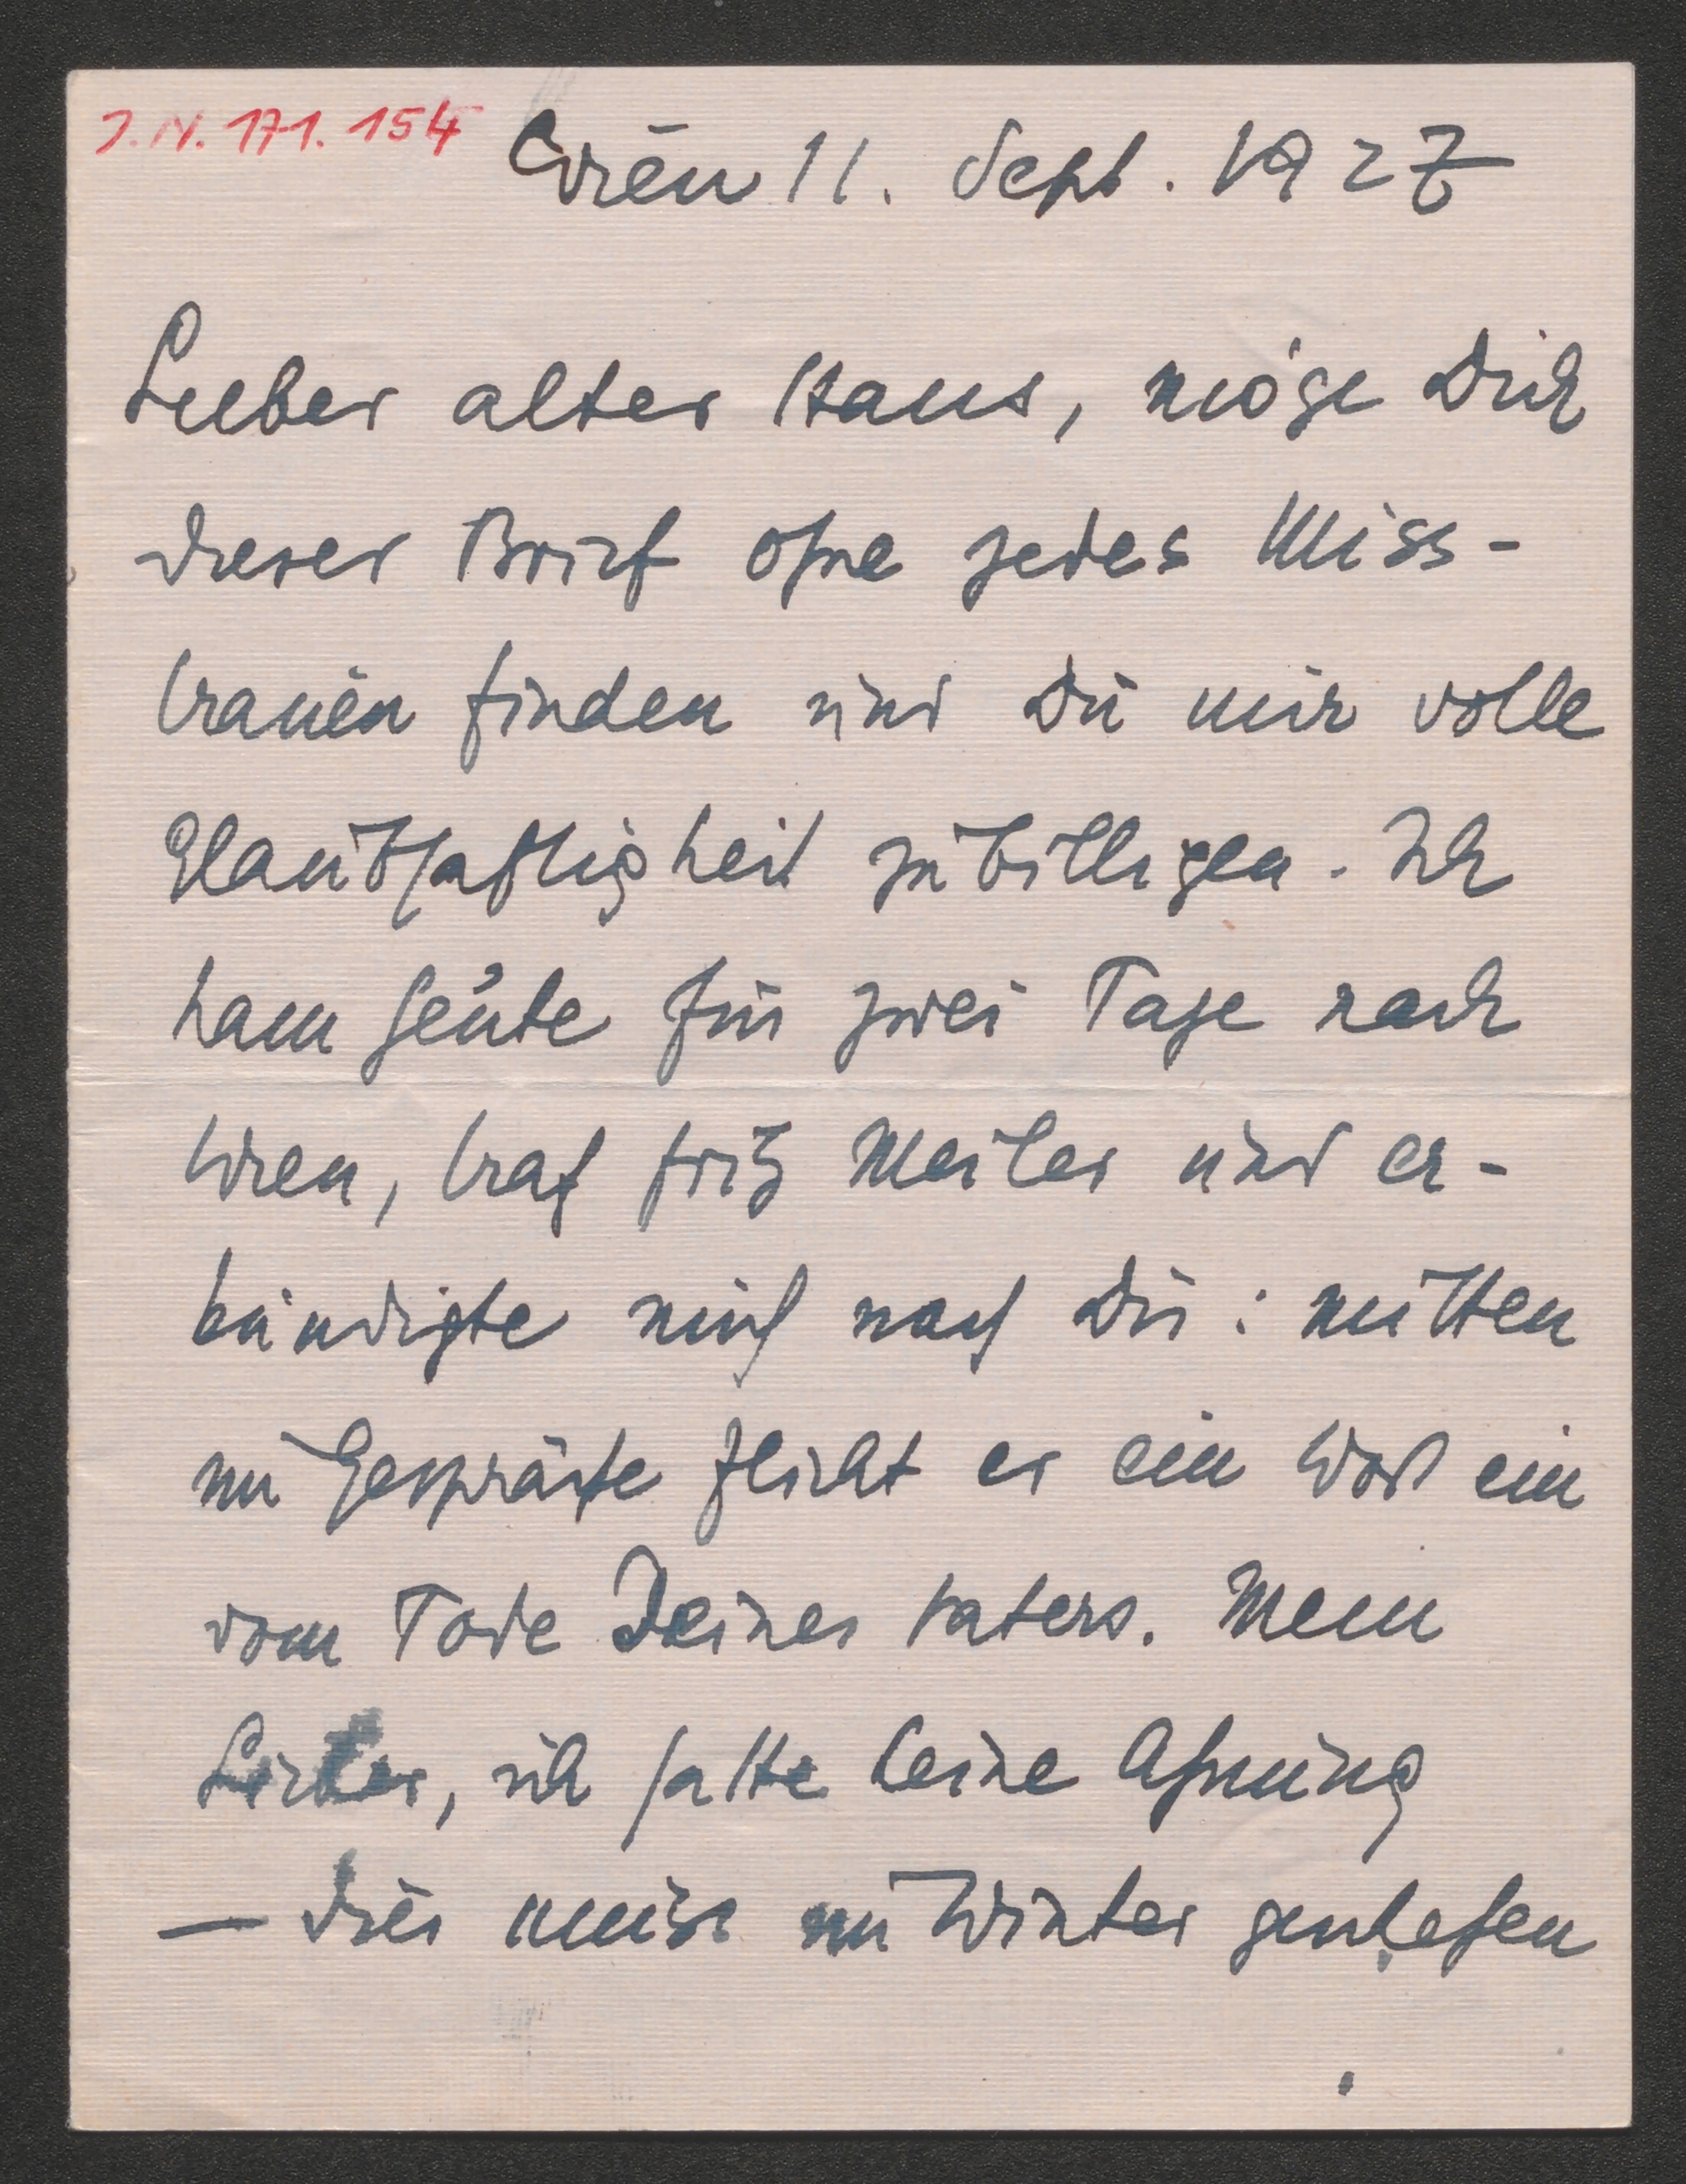 J.N. 171.154
Wien 11. Sept. 1927
Lieber alter Hans, möge Dich
dieser Brief ohne jedes Miss-
trauen finden und Du mir volle
Glaubhaftigkeit zubilligen. Ich
kam heute für zwei Tage nach
Wien, traf Fritz und er-
kundigte mich nach Dir: mitten
im Gespräche flicht er ein Wort ein
vom Tode Deines Vaters. Mein
Lieber, ich hatte keine Ahnung
— dies muss im Winter geschehen